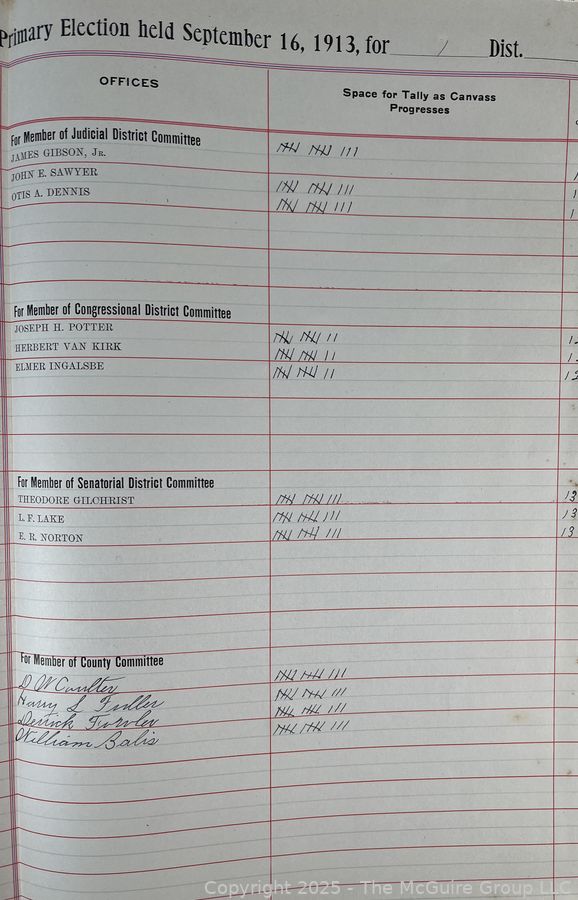 Primary Election held September 16, 1913, for 1 Dist.
OFFICES
Space for Tally as Canvass
Progresses
For Member of Judicial District Committee
JAMES GIBSON, Jr.
JOHN E. SAWYER
OTIS A. DENNIS
For Member of Congressional District Committee
JOSEPH H. POTTER
HERBERT VAN KIRK
ELMER INGALSBE
For Member of Senatorial District Committee
THEODORE GILCHRIST 13
L. F. LAKE 13
E. R. NORTON 13
For Member of County Committee
D W Coulter
Harry L Fuller
William Balis
Copyright 2025 - The McGuire Group LLC